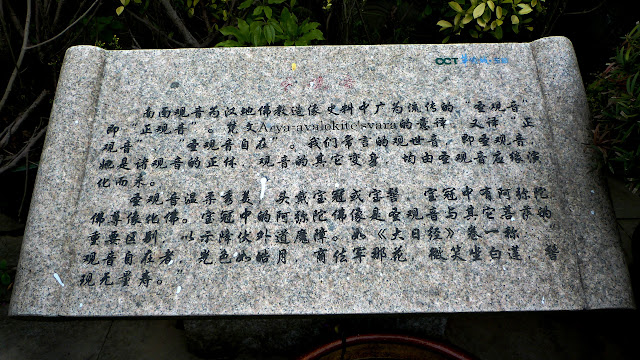 OCT 华侨城·东部
南面观音为汉地佛教造像史料中广为流传的“圣观音”
即“正观音”。梵文Arya-avalokite'svara的意译，又译“正
观音”、“圣观音自在”。我们常言的观世音，即圣观音
她是诸观音的正体，观音的其它变身，均由圣观音应缘演
化而来。
圣观音温柔秀美，头戴宝冠或宝髻，宝冠中有阿弥陀
佛尊像化佛。宝冠中的阿弥陀佛像是圣观音与其它菩萨的
重要区别，以示降伏外道魔障。如《大日经》卷一称，
观自在者，光色如皓月，商佉军那花，微笑坐白莲，髻
现无量寿。”